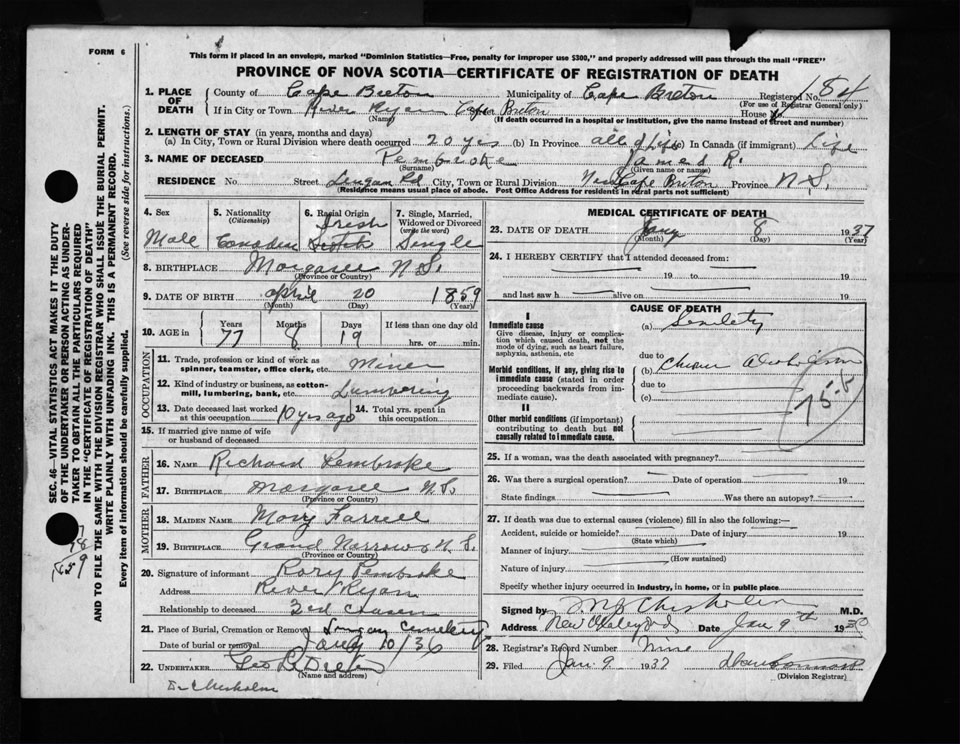 FORM 6
This form if placed in an envelope, marked "Dominion Statistics—Free, penalty for improper use $300," and properly addressed will pass through the mail "FREE"
PROVINCE OF NOVA SCOTIA—CERTIFICATE OF REGISTRATION OF DEATH
1. PLACE OF DEATH
County of Cape Breton Municipality of Cape Breton Registered No. 54
(For use of Registrar General only)
If in City or Town River Ryan Cape Breton House No.
(Name) (If death occurred in a hospital or institution, give the name instead of street and number)
2. LENGTH OF STAY (in years, months and days)
(a) In City, Town or Rural Division where death occurred 20 yrs (b) In Province all of Life (c) In Canada (if immigrant) Life
3. NAME OF DECEASED Pembroke James R.
(Surname) (Given name or names)
RESIDENCE No. Street Lingan Rd City, Town or Rural Division Cape Breton Province N.S.
(Residence means usual place of abode. Post Office Address for residents in rural parts not sufficient)
SEC. 46—VITAL STATISTICS ACT MAKES IT THE DUTY
OF THE UNDERTAKER OR PERSON ACTING AS UNDER-
TAKER TO OBTAIN ALL THE PARTICULARS REQUIRED
IN THE "CERTIFICATE OF REGISTRATION OF DEATH" AND
TO FILE THE SAME WITH THE DIVISION REGISTRAR WHO SHALL ISSUE THE BURIAL PERMIT.
WRITE PLAINLY WITH UNFADING INK. THIS IS A PERMANENT RECORD.
Every item of information should be carefully supplied. (See reverse side for instructions.)
4. Sex 5. Nationality (Citizenship) 6. Racial Origin 7. Single, Married, Widowed or Divorced (write the word)
Irish
Male Canadian Scotch Single
8. BIRTHPLACE Margaree N.S.
(Province or Country)
9. DATE OF BIRTH April 20 1859
(Month) (Day) (Year)
10. AGE in Years Months Days If less than one day old
77 8 19 hrs. or min.
OCCUPATION
11. Trade, profession or kind of work as spinner, teamster, office clerk, etc. Miner
12. Kind of industry or business, as cotton-mill, lumbering, bank, etc. Lumbering
13. Date deceased last worked at this occupation 10 yrs ago 14. Total yrs. spent in this occupation
15. If married give name of wife or husband of deceased
FATHER
16. NAME Richard Pembroke
17. BIRTHPLACE Margaree N.S.
(Province or Country)
MOTHER
18. MAIDEN NAME Mary Farrell
19. BIRTHPLACE Grand Narrows N.S.
(Province or Country)
20. Signature of informant Rory Pembroke
Address River Ryan
Relationship to deceased
21. Place of Burial, Cremation or Removal Lingan Cemetery
Date of burial or removal Jany 10/36
22. UNDERTAKER
(Name and address)
Chisholm
MEDICAL CERTIFICATE OF DEATH
23. DATE OF DEATH Jany 8 1937
(Month) (Day) (Year)
24. I HEREBY CERTIFY that I attended deceased from:
19 to 19
and last saw h alive on 19
CAUSE OF DEATH
I
Immediate cause
Give disease, injury or complication which caused death, not the mode of dying, such as heart failure, asphyxia, asthenia, etc
(a) Senility
due to
Morbid conditions, if any, giving rise to immediate cause (stated in order proceeding backwards from immediate cause).
(b)
due to
(c)
II
Other morbid conditions (if important) contributing to death but not causally related to immediate cause.
25. If a woman, was the death associated with pregnancy?
26. Was there a surgical operation? Date of operation 19
State findings Was there an autopsy?
27. If death was due to external causes (violence) fill in also the following:—
Accident, suicide or homicide? Date of injury 19
(State which)
Manner of injury
(How sustained)
Nature of injury
Specify whether injury occurred in industry, in home, or in public place
Signed by Chisholm M.D.
Address New Waterford Date Jan 9th 1936
28. Registrar's Record Number Nine
29. Filed Jan 9 1937
(Division Registrar)